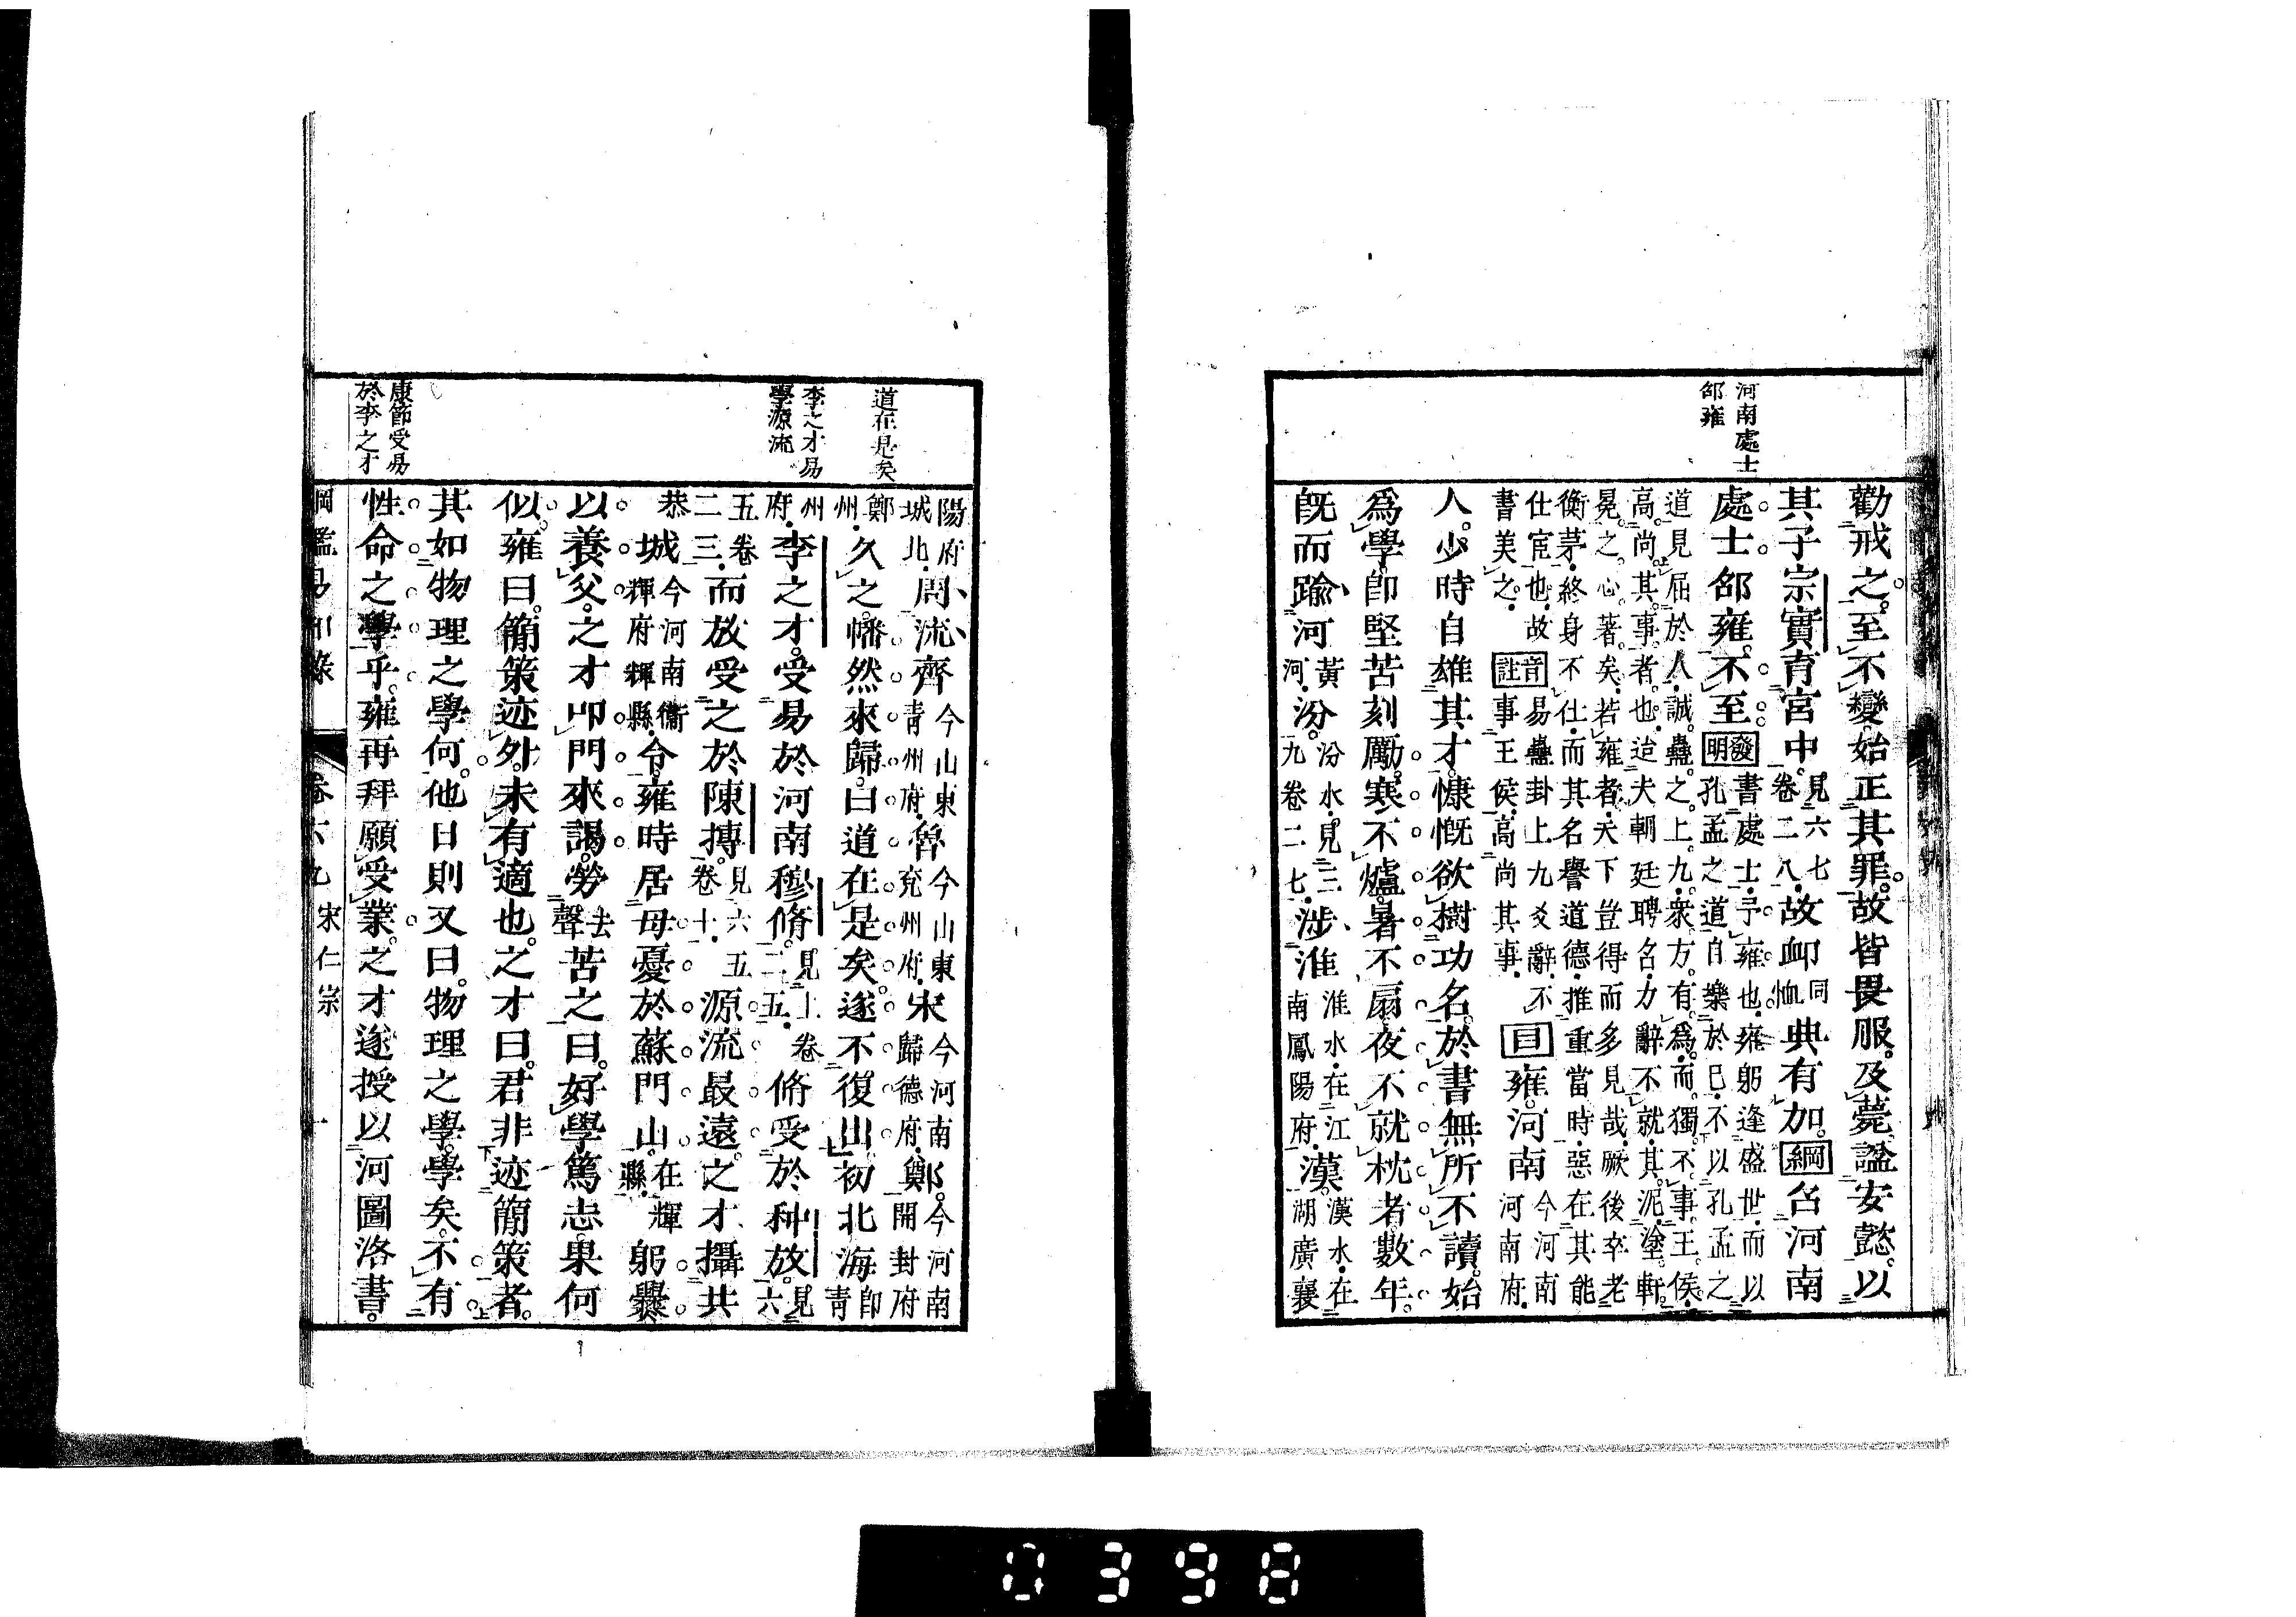 河南處士
邵雍
勸戒之。至不變。始正其罪。故皆畏服。及薨。謚安懿。以
其子宗實育宮中。見六七卷二八。故卹同恤典有加。綱召河南
處士邵雍。不至。發明書處士。予雍也。雍躬逢盛世。而以孔孟之道自樂於己。不以孔孟之
道見屈於人。誠蠱之上九。衆方有爲。而獨不事王侯。
高尚其事者也。迨夫朝廷聘名。力辭不就。其泥塗軒
冕之心著矣。若雍者。天下豈得而多見哉。厥後卒老
衡茅。終身不仕。而其名譽道德。推重當時。惡在其能
仕宦也。故書美之。音註易蠱卦上九爻辭。不事王侯。高尚其事。目雍。河南今河南河南府。
人。少時自雄其才。慷慨欲樹功名。於書無所不讀。始
爲學。卽堅苦刻勵。寒不爐。暑不扇。夜不就枕者數年。
旣而踰河黃河。汾。汾水。見三九卷二七。涉淮淮水。在江南鳳陽府。漢。漢水。在湖廣襄
道在是矣
李之才易
學源流
康節受易
於李之才
陽府城北。周流齊今山東青州府。魯今山東兗州府。宋今河南歸德府。鄭。今河南開封府
鄭州。久之。幡然來歸。曰道在是矣。遂不復出。初北海卽青
州府。李之才。受易於河南穆脩。見上卷二五。脩受於种放。見六
五卷二三。而放受之於陳摶。見六五卷十。源流最遠。之才攝共
恭城今河南衞輝府輝縣。令。雍時居母憂於蘇門山。在輝縣。躬爨
以養父。之才叩門來謁。勞去聲苦之曰。好學篤志。果何
似。雍曰。簡策迹外。未有適也。之才曰。君非迹簡策者。
其如物理之學何。他日則又曰。物理之學。學矣。不有
性命之學乎。雍再拜願受業。之才遂授以河圖洛書。
綱鑑易知錄 卷六九 宋仁宗 一
0398